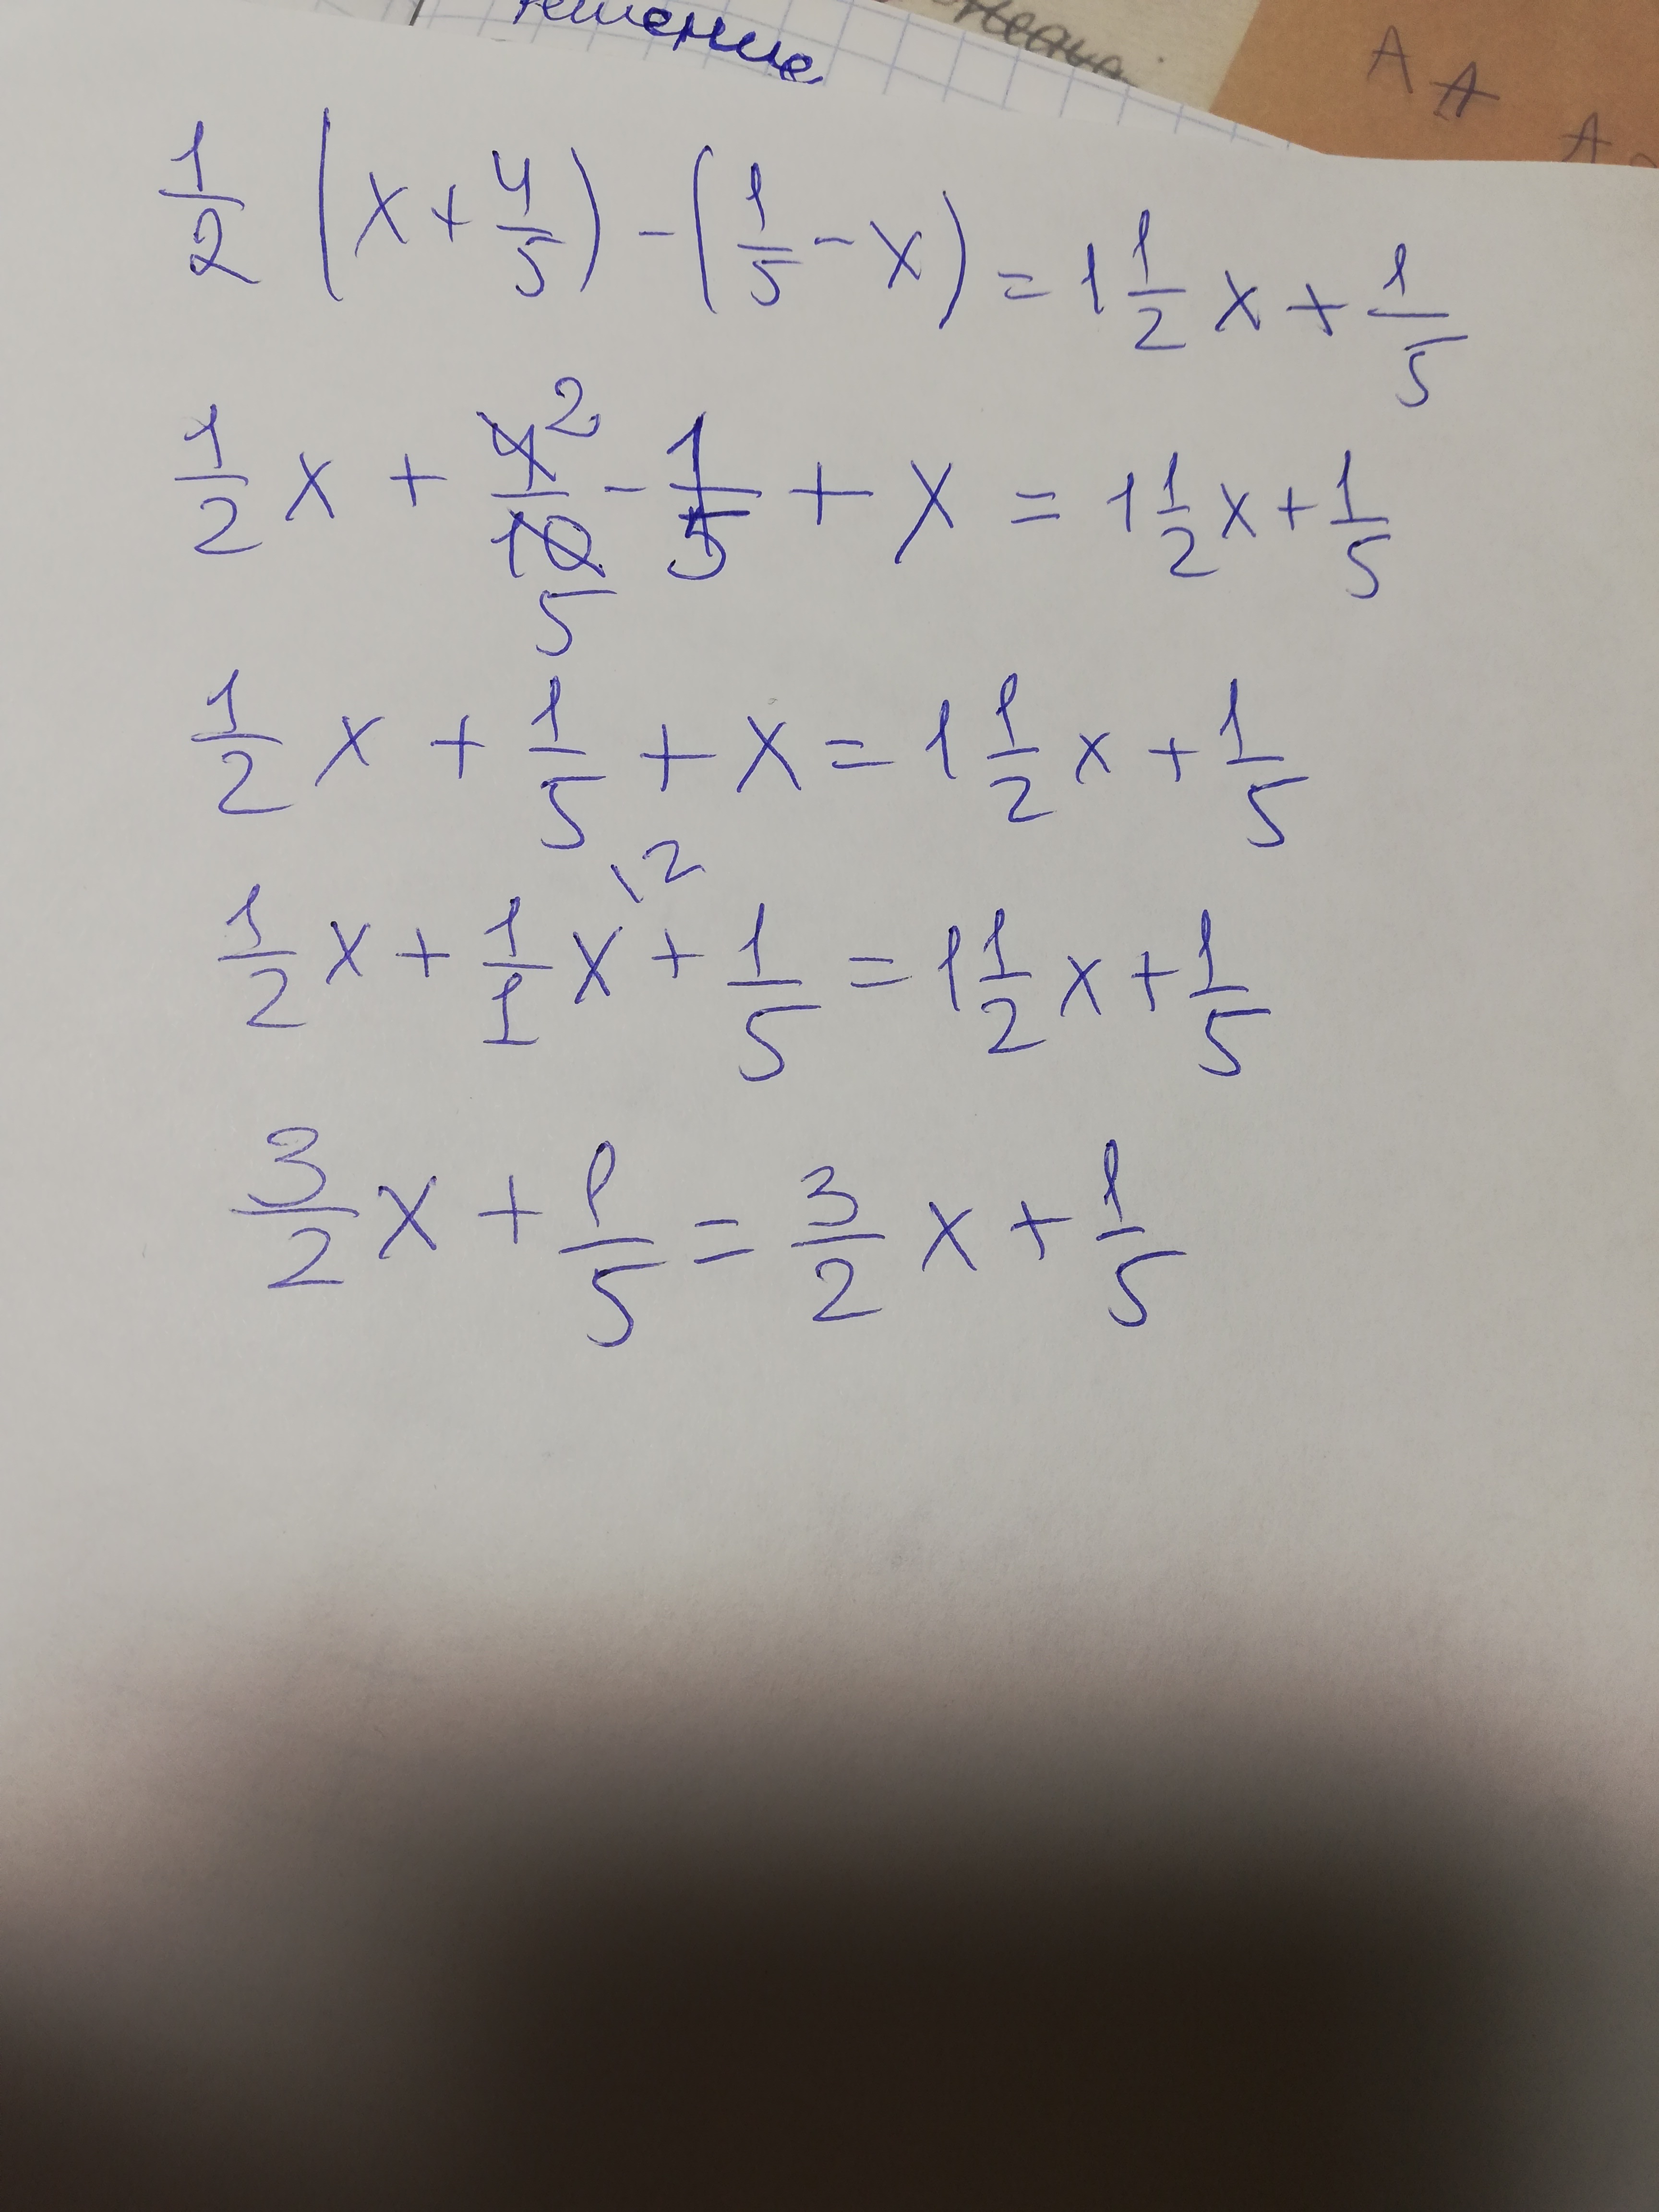 решение
А А
1/2 (x + 4/5) - (1/5 - x) = 1 1/2 x + 1/5
1/2 x + 4/10 2/5 - 1/5 + x = 1 1/2 x + 1/5
1/2 x + 1/5 + x = 1 1/2 x + 1/5
1/2 x + 1/1 x \2 + 1/5 = 1 1/2 x + 1/5
3/2 x + 1/5 = 3/2 x + 1/5